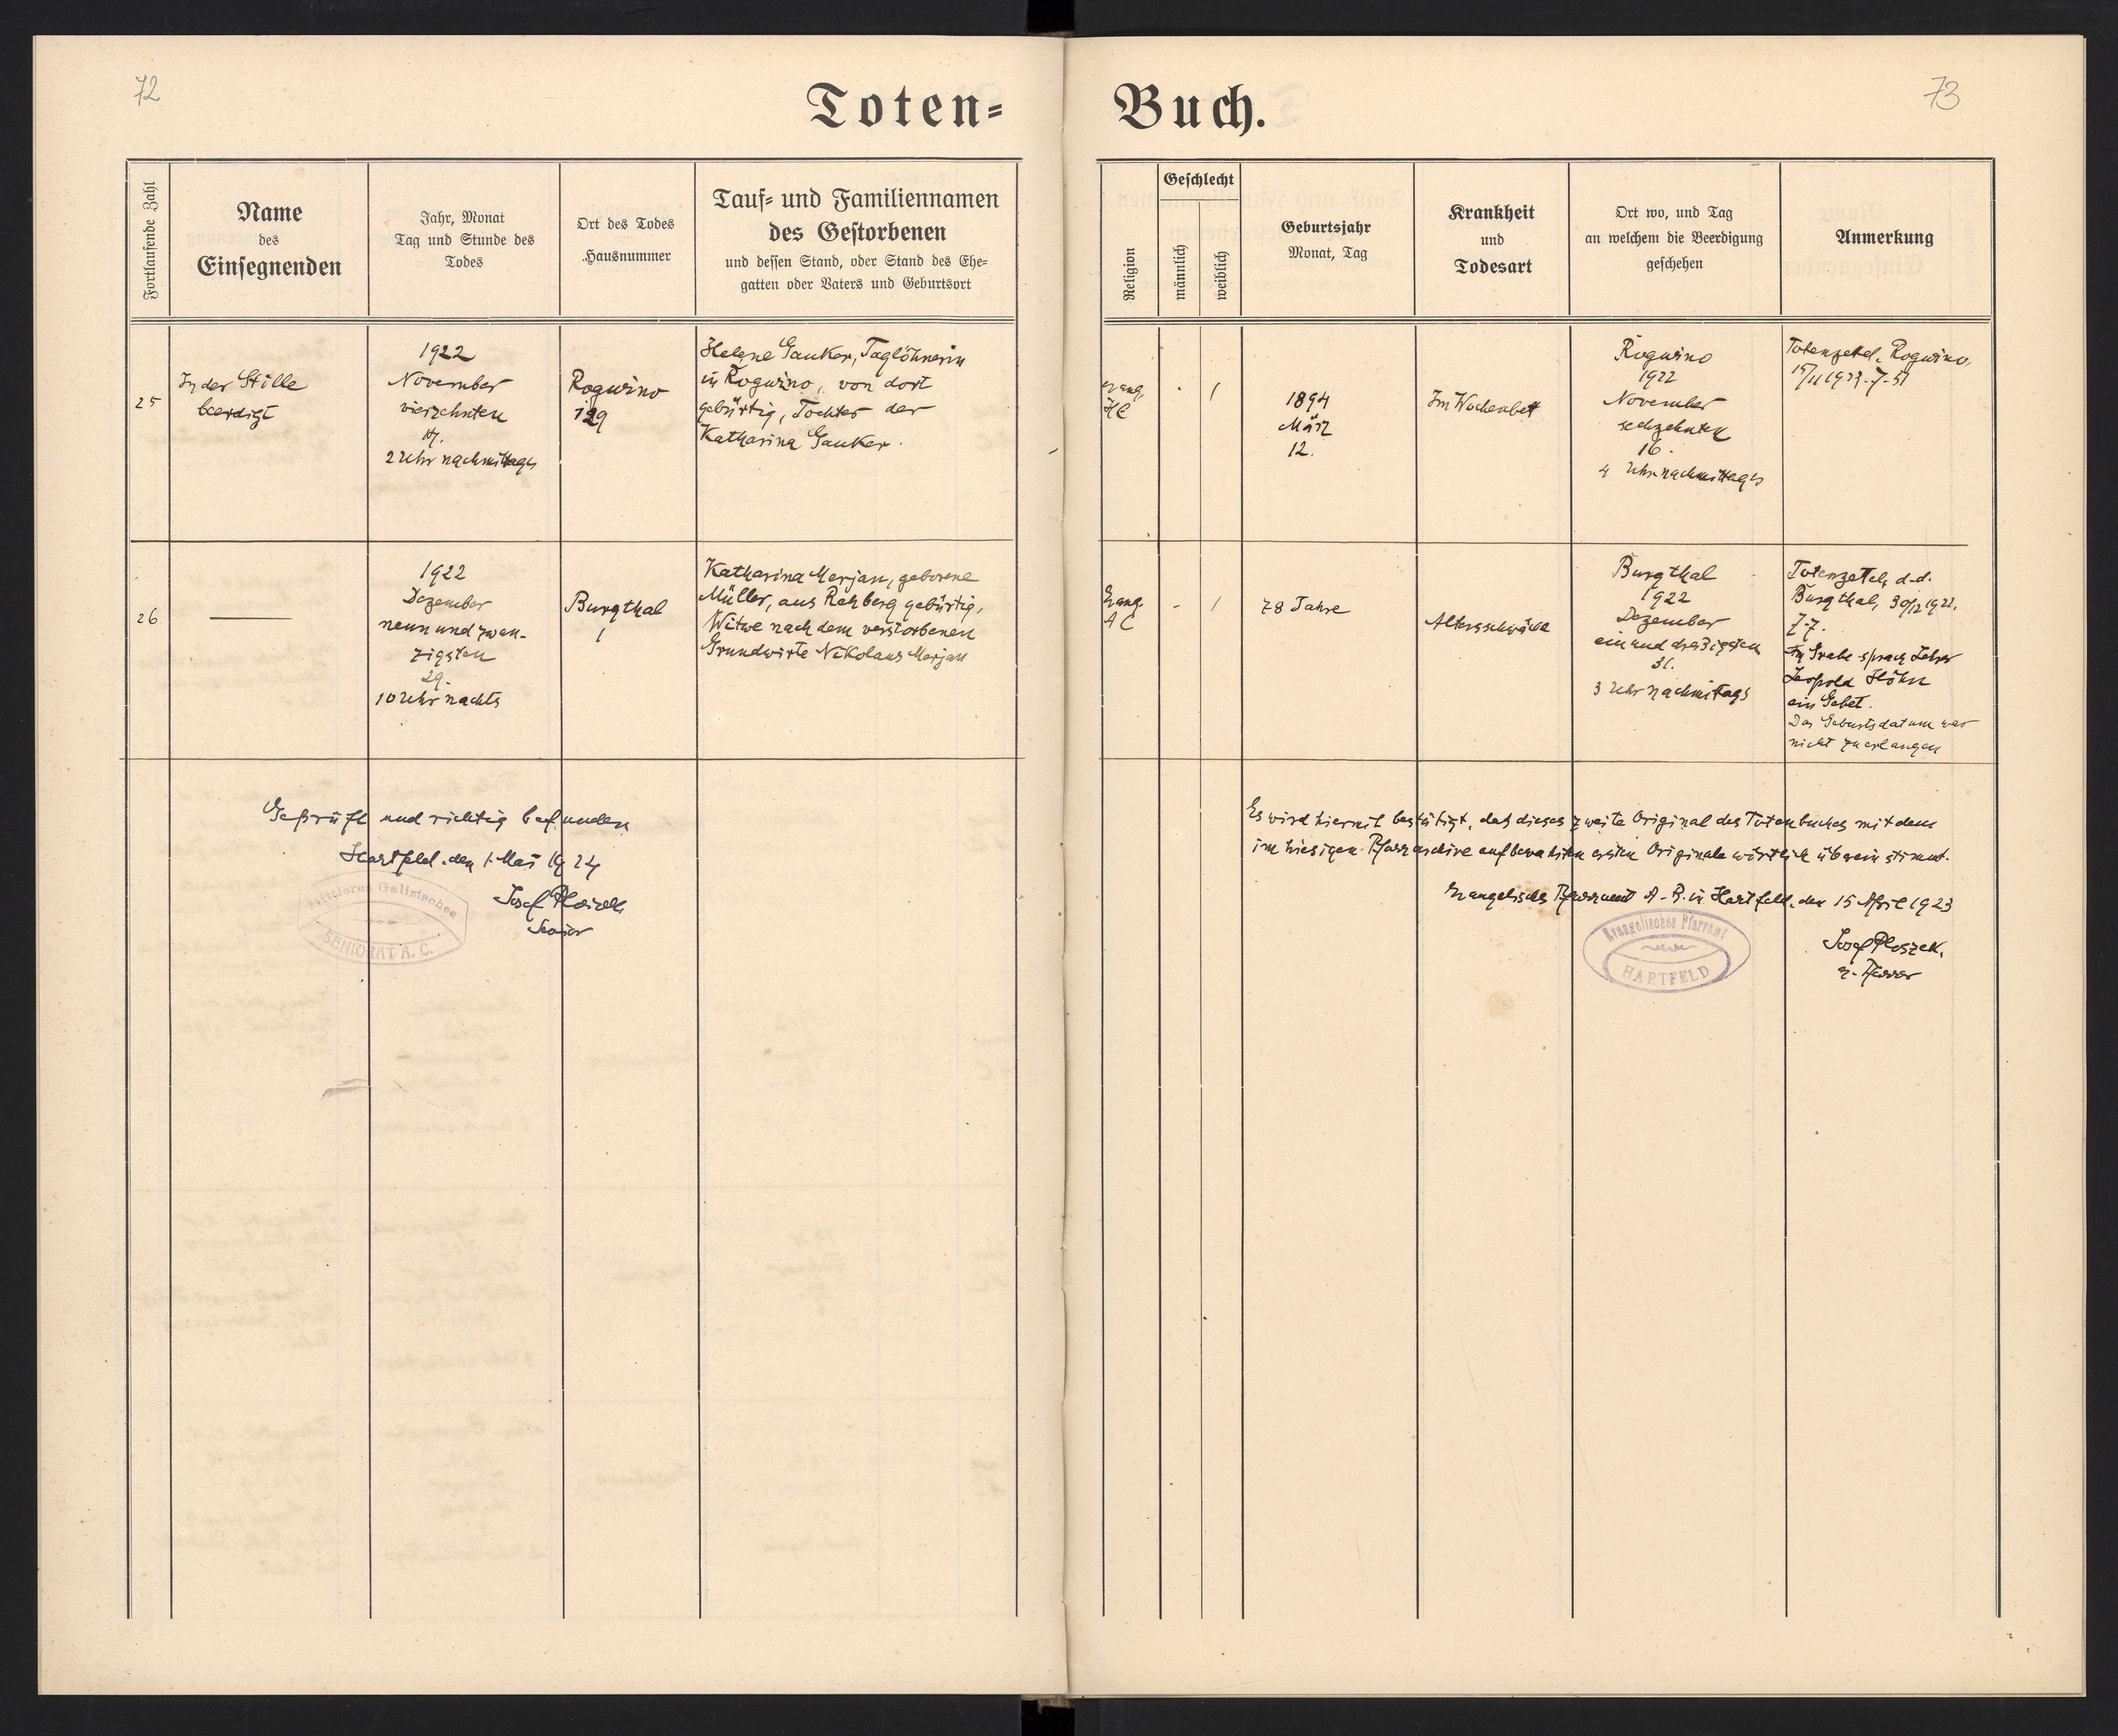 72
73
Toten=
Buch.
Fortlaufende Zahl
Name
des
Einsegnenden
Jahr, Monat
Tag und Stunde des
Todes
Ort des Todes
Hausnummer
Tauf= und Familiennamen
des Gestorbenen
und dessen Stand, oder Stand des Ehe=
gatten oder Vaters und Geburtsort
Religion
Geschlecht
männlich
weiblich
Geburtsjahr
Monat, Tag
Krankheit
und
Todesart
Ort wo, und Tag
an welchem die Beerdigung
geschehen
Anmerkung
25
In der Stille
beerdigt
1922
November
vierzehnten
14.
2 Uhr nachmittags
Roguzno
129
Helene Gauker, Taglöhnerin
in Roguzno, von dort
gebürtig, Tochter der
Katharina Gauker.
evang.
HC
1
1894
März
12.
Im Wochenbett
Roguzno
1922
November
sechzehnten
16.
4 Uhr nachmittags
Totenzetel, Roguzno,
26
1922
Dezember
neun und zwan-
zigsten
29.
10 Uhr nachts
Burgthal
1
Katharina Merjan, geborene
Müller, aus Rehberg gebürtig,
Witwe nach dem verstorbenen
Grundwirte Nikolaus Merjan
Evang.
AC
1
78 Jahre
Altersschwäche
Burgthal
1922
Dezember
ein und dreißigsten
31.
3 Uhr nachmitags
Totenzetel, d.d.
Burgthal, 30/12 1922.
Im Grabe sprach Lehrer
Leopold Höhn
ein Gebet.
Das Geburtsdatum war
nicht zu erlangen
Geprüft und richtig befunden
Hartfeld, den 1. Mai 1924
Josef Ploszek
Senior
Mittleres Galizisches
SENIORAT A. C.
Es wird hiermit bestätigt, daß dieses zweite Original des Totenbuches mit dem
im hiesigen Pfarrarchive aufbewahrten ersten Originale wörtlich übereinstimmt.
Evangelisches Pfarramt A. B. in Hartfeld, den 15 April 1923
Evangelisches Pfarramt
HARTFELD
Josef Ploszek,
e. Pfarrer